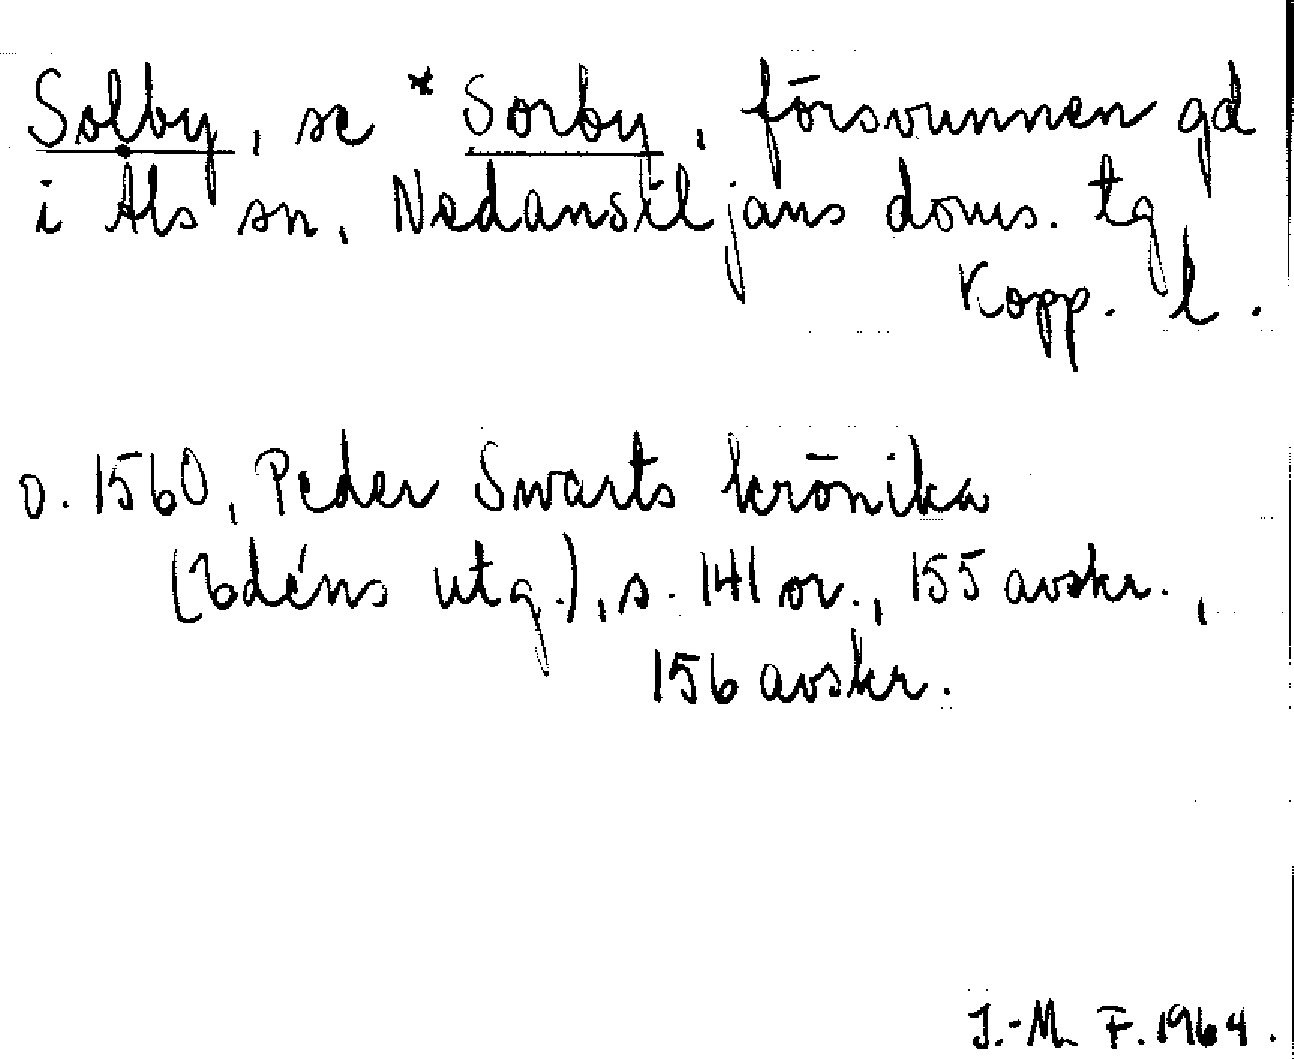 Solby, se *Sorby, försvunnen gd
i Als sn, Nedansiljans doms. tg
Kopp. l.
o. 1560, Peder Swarts krönika
(Edéns utg.), s. 141 or., 155 avskr.,
156 avskr.
J.-M. F. 1964.